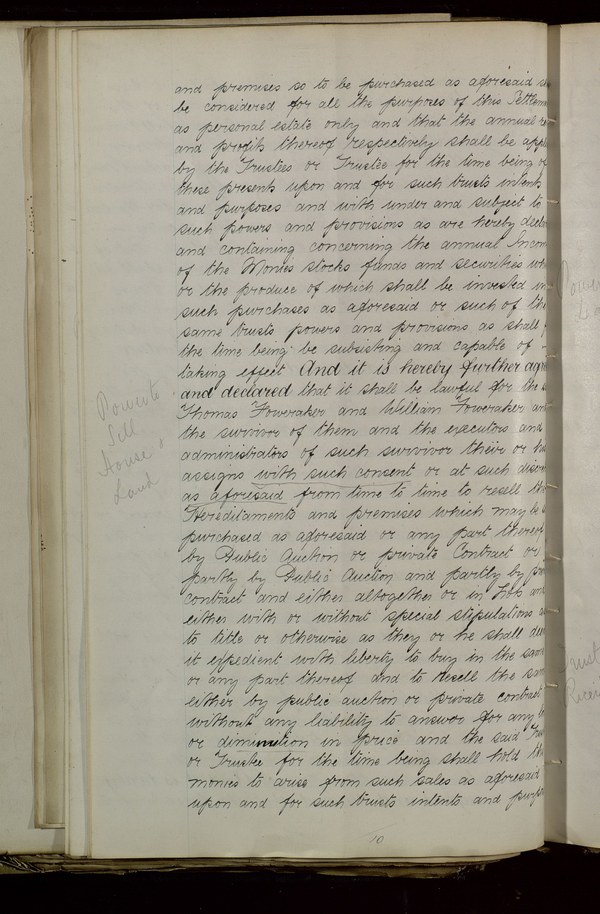 and premises so to be purchased as aforesaid
be considered for all the purposes of this Settlem
as personal estate only and that the annual
and profits thereof respectively shall be appl
by the Trustees or Trustee for the time being of
these presents upon and for such trusts intents
and purposes and with under and subject to
such powers and provisions as are hereby decla
and containing concerning the annual Incom
of the Monies stocks funds and securities whi
or the produce of which shall be invested in
such purchases as aforesaid or such of the
same trusts powers and provisions as shall f
the time being be subsisting and capable of
taking effect And it is hereby further agre
and declared that it shall be lawful for the s
Thomas Foweraker and William Foweraker and
the survivor of them and the executors and
administrators of such survivor their or his
assigns with such consent or at such discre
as aforesaid from time to time to resell the
Hereditaments and premises which may be s
purchased as aforesaid or any part thereof
by Public Auction or private Contract or
partly by Public Auction and partly by pri
contract and either altogether or in Lots and
either with or without special stipulations as
to title or otherwise as they or he shall dee
it expedient with liberty to buy in the same
or any part thereof and to resell the same
either by public auction or private contract
without any liability to answer for any lo
or diminution in price and the said Trus
or Trustee for the time being shall hold the
monies to arise from such sales as aforesaid
upon and for such trusts intents and purpo
Power to
Sell
House
Land
10
Power
Trust
Recei